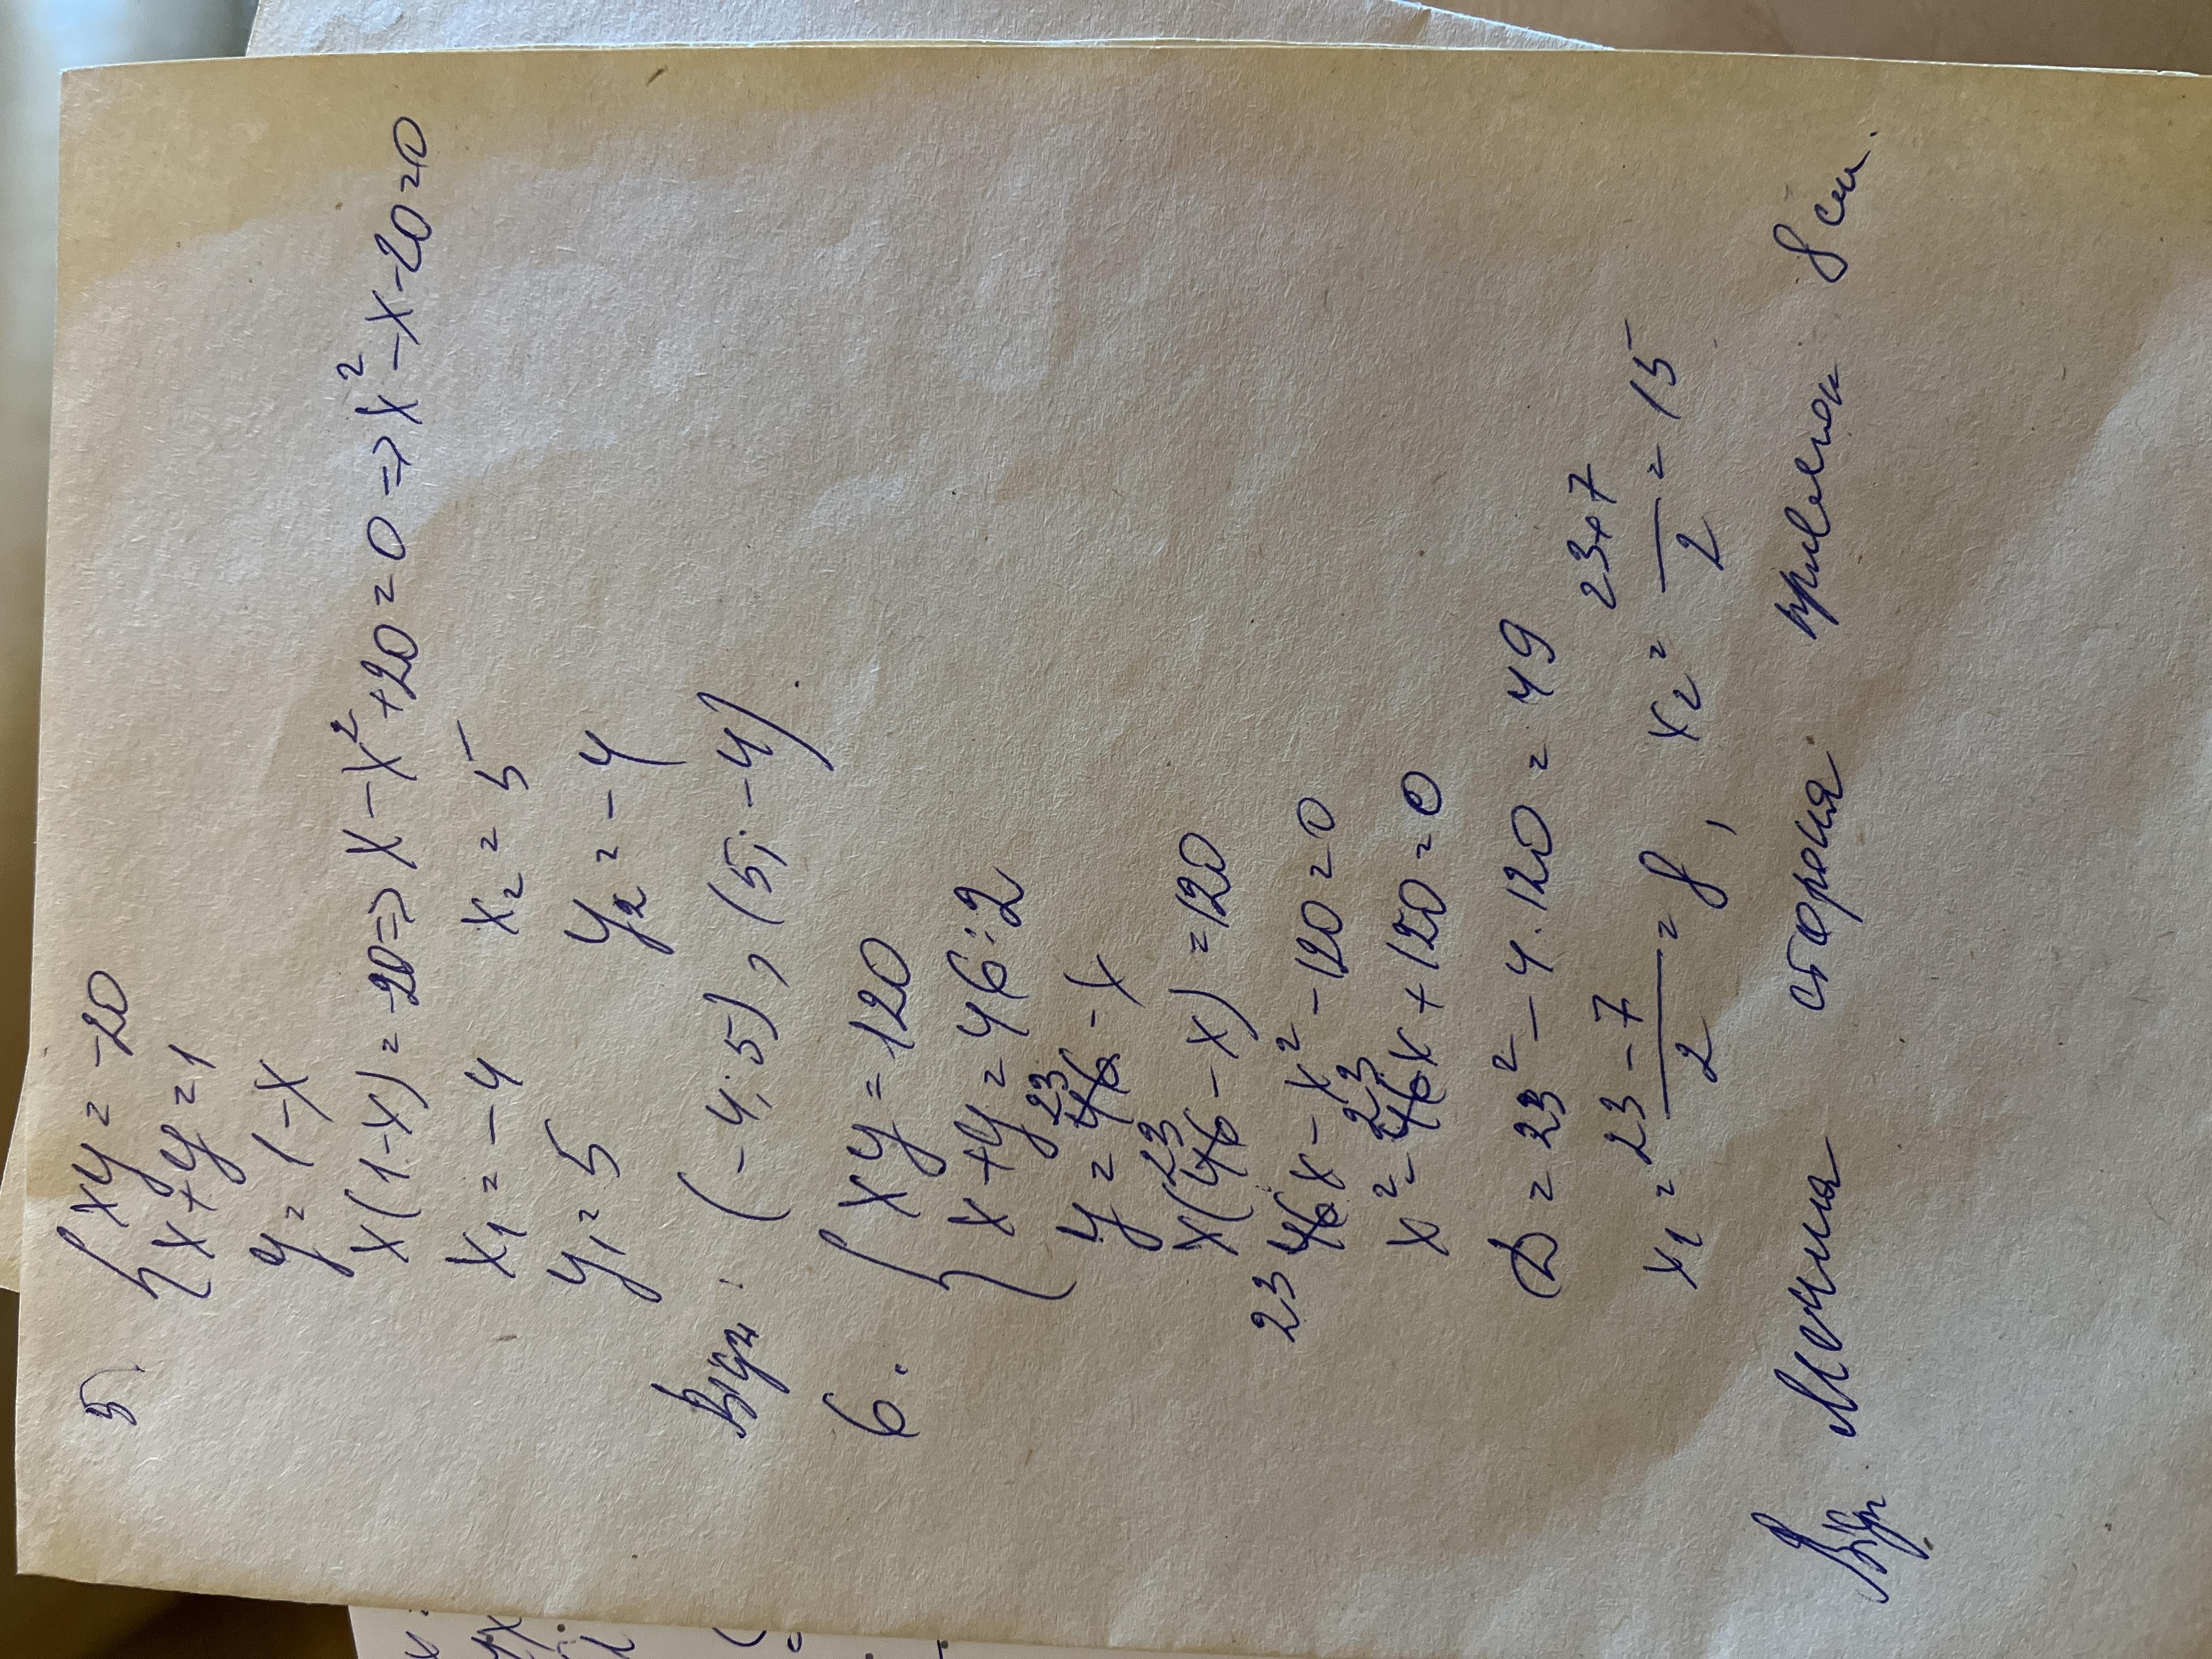 5) { xy = -20
x + y = 1
y = 1 - x
x(1-x) = -20 => x - x² + 20 = 0 => x² - x - 20 = 0
x₁ = -4 x₂ = 5
y₁ = 5 y₂ = -4
: (-4; 5), (5; -4).
6. { xy = 120
x + y = 46:2
y = 23 - x
x(23 - x) = 120
23x - x² - 120 = 0
x² - 23x + 120 = 0
D = 23² - 4·120 = 49
x₁ = (23-7)/2 = 8, x₂ = (23+7)/2 = 15
сторона 8 см.